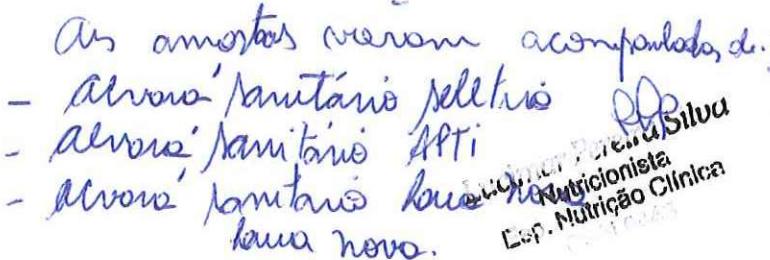 As amostras vieram acompanhadas de:
- Alvará Sanitário
- Alvará Sanitário APTI
- Alvará Sanitário
nova.
Pereira Silva
Nutricionista
Esp. Nutrição Clínica